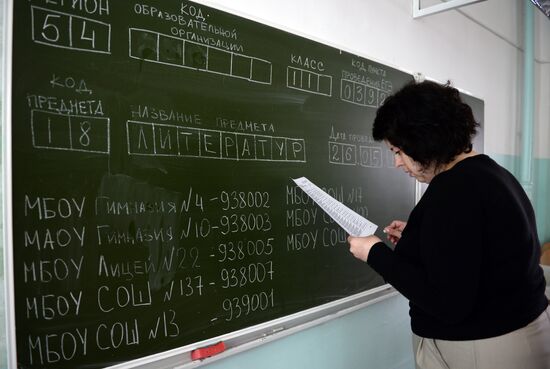 РЕГИОН
54
КОД
ОБРАЗОВАТЕЛЬНОЙ
ОРГАНИЗАЦИИ
КЛАСС
КОД ПУНКТА
ПРОВЕДЕНИЯ ЕГЭ
0392
КОД
ПРЕДМЕТА
18
НАЗВАНИЕ ПРЕДМЕТА
ЛИТЕРАТУР
ДАТА ПРОВЕД
2605
МБОУ Гимназия №4 - 938002
МАОУ Гимназия №10 - 938003
МБОУ Лицей №22 - 938005
МБОУ СОШ №137 - 938007
МБОУ СОШ №13 - 939001
МБОУ СОШ №17
МБОУ СОШ